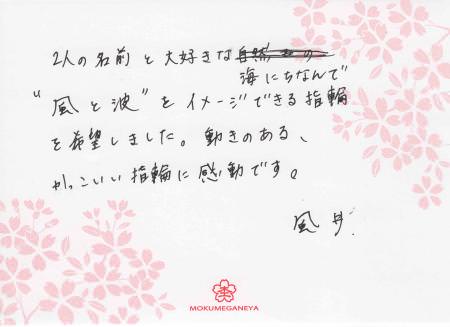 2人の名前と大好きな
海にちなんで
"風と波"をイメージできる指輪
を希望しました。動きのある、
かっこいい指輪に感動です。
風
MOKUMEGANEYA